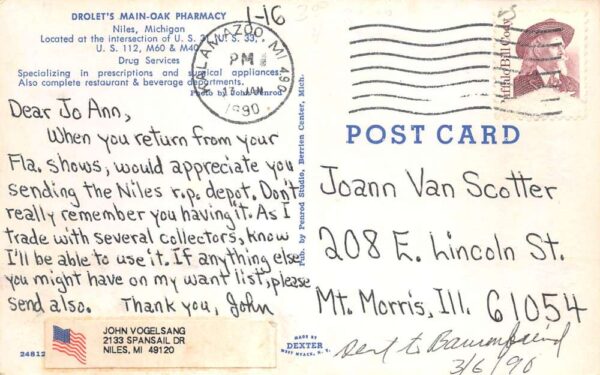 DROLET'S MAIN-OAK PHARMACY
Niles, Michigan
Located at the intersection of U. S. 31, U. S. 33,
U. S. 112, M60 & M40
Drug Services
Specializing in prescriptions and surgical appliances.
Also complete restaurant & beverage departments.
Photo by John Penrod
1-16
KALAMAZOO, MI 490
PM
13 JAN
1990
Buffalo Bill Cody
Dear Jo Ann,
When you return from your
Fla. shows, would appreciate you
sending the Niles r.p. depot. Don't
really remember you having it. As I
trade with several collectors, know
I'll be able to use it. If anything else
you might have on my want list, please
send also. Thank you, John
JOHN VOGELSANG
2133 SPANSAIL DR
NILES, MI 49120
24812
Pub. by Penrod Studio, Berrien Center, Mich.
POST CARD
Joann Van Scotter
208 E. Lincoln St.
Mt. Morris, Ill. 61054
MADE BY
DEXTER
WEST NYACK, N. Y.
sent to
3/6/90